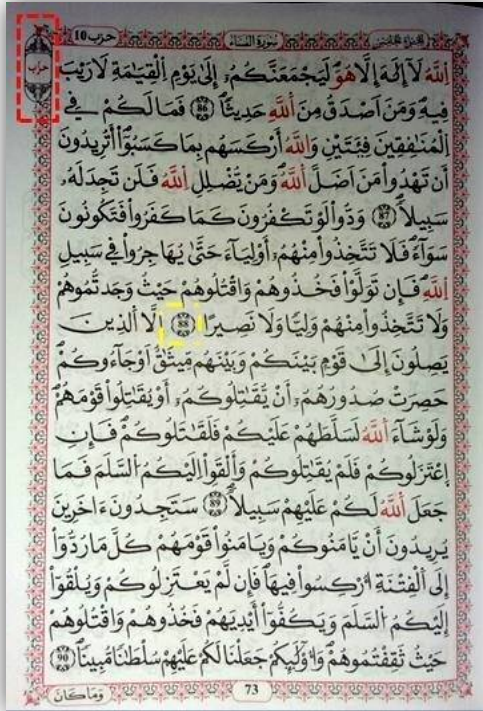 الجزء الخامس سورة النساء حزب 10
حزب
اِ۬للَّهُ لَآ إِلَٰهَ إِلَّا هُوَ لَيَجْمَعَنَّكُمُۥٓ إِلَىٰ يَوْمِ اِ۬لْقِيَٰمَةِ لَا رَيْبَ
فِيهِۖ وَمَنَ اَصْدَقُ مِنَ اَ۬للَّهِ حَدِيثاٗۖ 86 فَمَا لَكُمْ فِے
اِ۬لْمُنَٰفِقِينَ فِئَتَيْنِ وَاللَّهُ أَرْكَسَهُم بِمَا كَسَبُوٓاْۖ أَتُرِيدُونَ
أَن تَهْدُواْ مَنَ اَضَلَّ اَ۬للَّهُۖ وَمَنْ يُّضْلِلِ اِ۬للَّهُ فَلَن تَجِدَ لَهُۥ
سَبِيلاٗۖ 87 وَدُّواْ لَوْ تَكْفُرُونَ كَمَا كَفَرُواْ فَتَكُونُونَ
سَوَآءٗۖ فَلَا تَتَّخِذُواْ مِنْهُمُۥٓ أَوْلِيَآءَ حَتَّىٰ يُهَاجِرُواْ فِے سَبِيلِ
اِ۬للَّهِۖ فَإِن تَوَلَّوْاْ فَخُذُوهُمْ وَاقْتُلُوهُمْ حَيْثُ وَجَدتُّمُوهُمْ
وَلَا تَتَّخِذُواْ مِنْهُمْ وَلِيّاٗ وَلَا نَصِيراً 88 اِلَّا اَ۬لذِينَ
يَصِلُونَ إِلَىٰ قَوْمِۢ بَيْنَكُمْ وَبَيْنَهُم مِّيثَٰقٌ اَوْ جَآءُوكُمْ
حَصِرَتْ صُدُورُهُمُۥٓ أَنْ يُّقَٰتِلُوكُمُۥٓ أَوْ يُقَٰتِلُواْ قَوْمَهُمْۖ
وَلَوْ شَآءَ اَ۬للَّهُ لَسَلَّطَهُمْ عَلَيْكُمْ فَلَقَٰتَلُوكُمْۖ فَإِنِ
اِ۪عْتَزَلُوكُمْ فَلَمْ يُقَٰتِلُوكُمْ وَأَلْقَوِاْ اِلَيْكُمُ اُ۬لسَّلَمَ فَمَا
جَعَلَ اَ۬للَّهُ لَكُمْ عَلَيْهِمْ سَبِيلاٗۖ 89 سَتَجِدُونَ ءَاخَرِينَ
يُرِيدُونَ أَنْ يَّامَنُوكُمْ وَيَامَنُواْ قَوْمَهُمْ كُلَّ مَا رُدُّوٓاْ
إِلَى اَ۬لْفِتْنَةِ أُرْكِسُواْ فِيهَاۖ فَإِن لَّمْ يَعْتَزِلُوكُمْ وَيُلْقُوٓاْ
إِلَيْكُمُ اُ۬لسَّلَمَ وَيَكُفُّوٓاْ أَيْدِيَهُمْ فَخُذُوهُمْ وَاقْتُلُوهُمْ
حَيْثُ ثَقِفْتُمُوهُمْۖ وَأُوْلَٰٓئِكُمْ جَعَلْنَا لَكُمْ عَلَيْهِمْ سُلْطَٰناٗ مُّبِيناٗۖ 90
73
وَمَا كَانَ